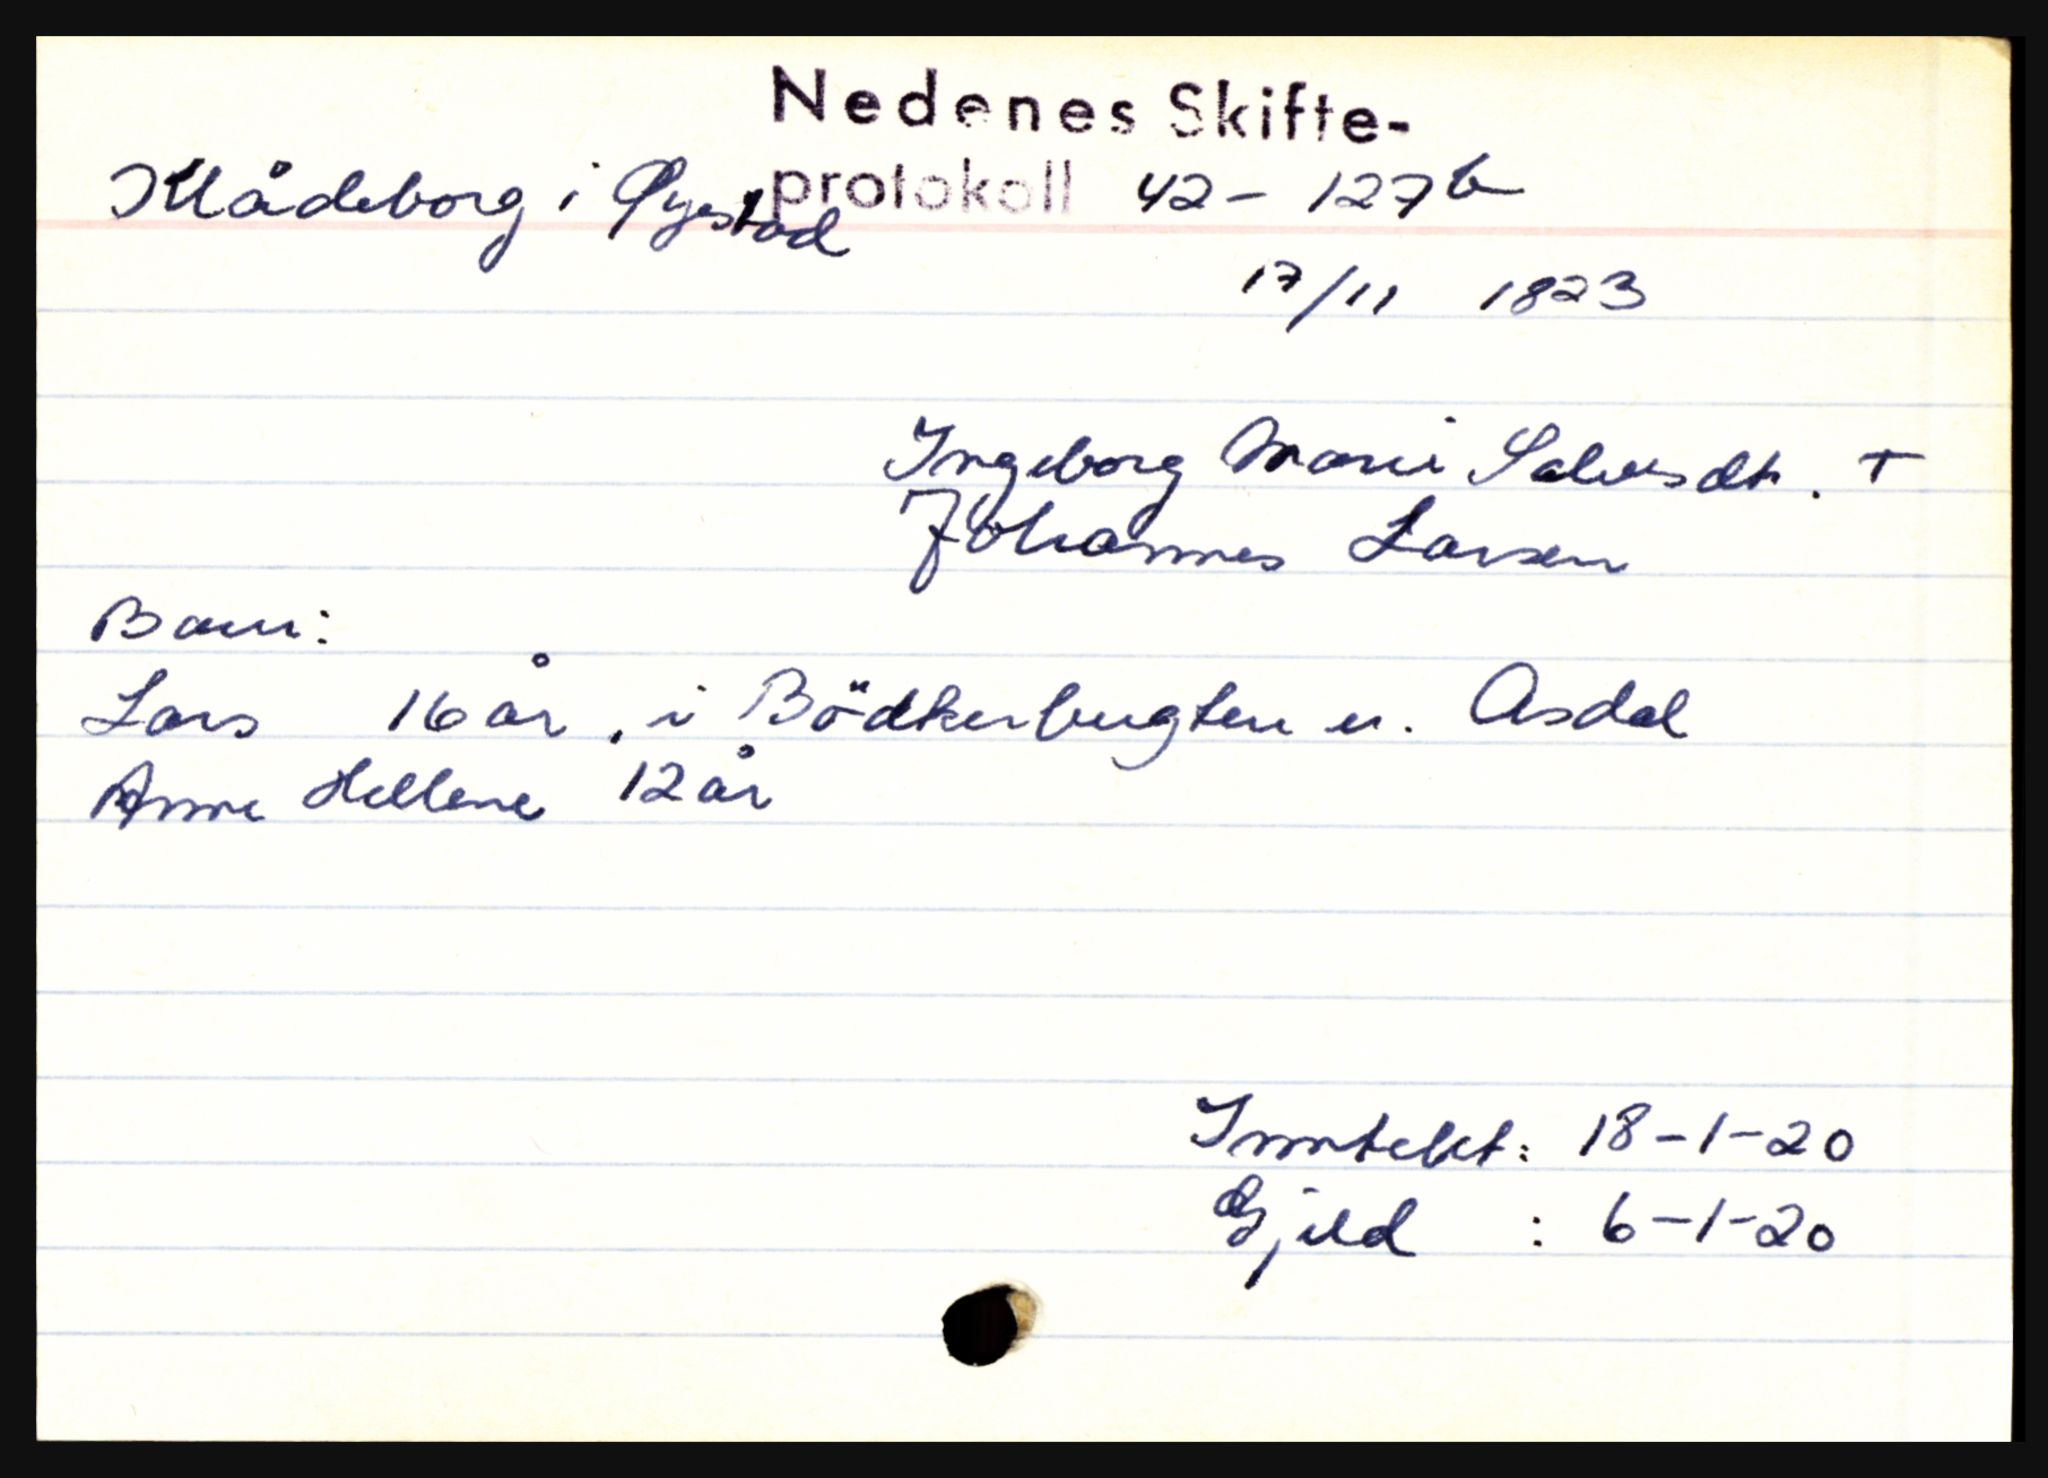 Nedenes Skifte-
protokoll 42 - 127 b
Klådeborg i Øyestad
17/11 1823
Ingeborg Marie Salvesdtr. +
Johannes Larsen
Barn:
Lars 16 år, i Bödkerbugten u. Asdal
Anne Hellene 12 år
Inntekt: 18-1-20
Gjeld : 6-1-20